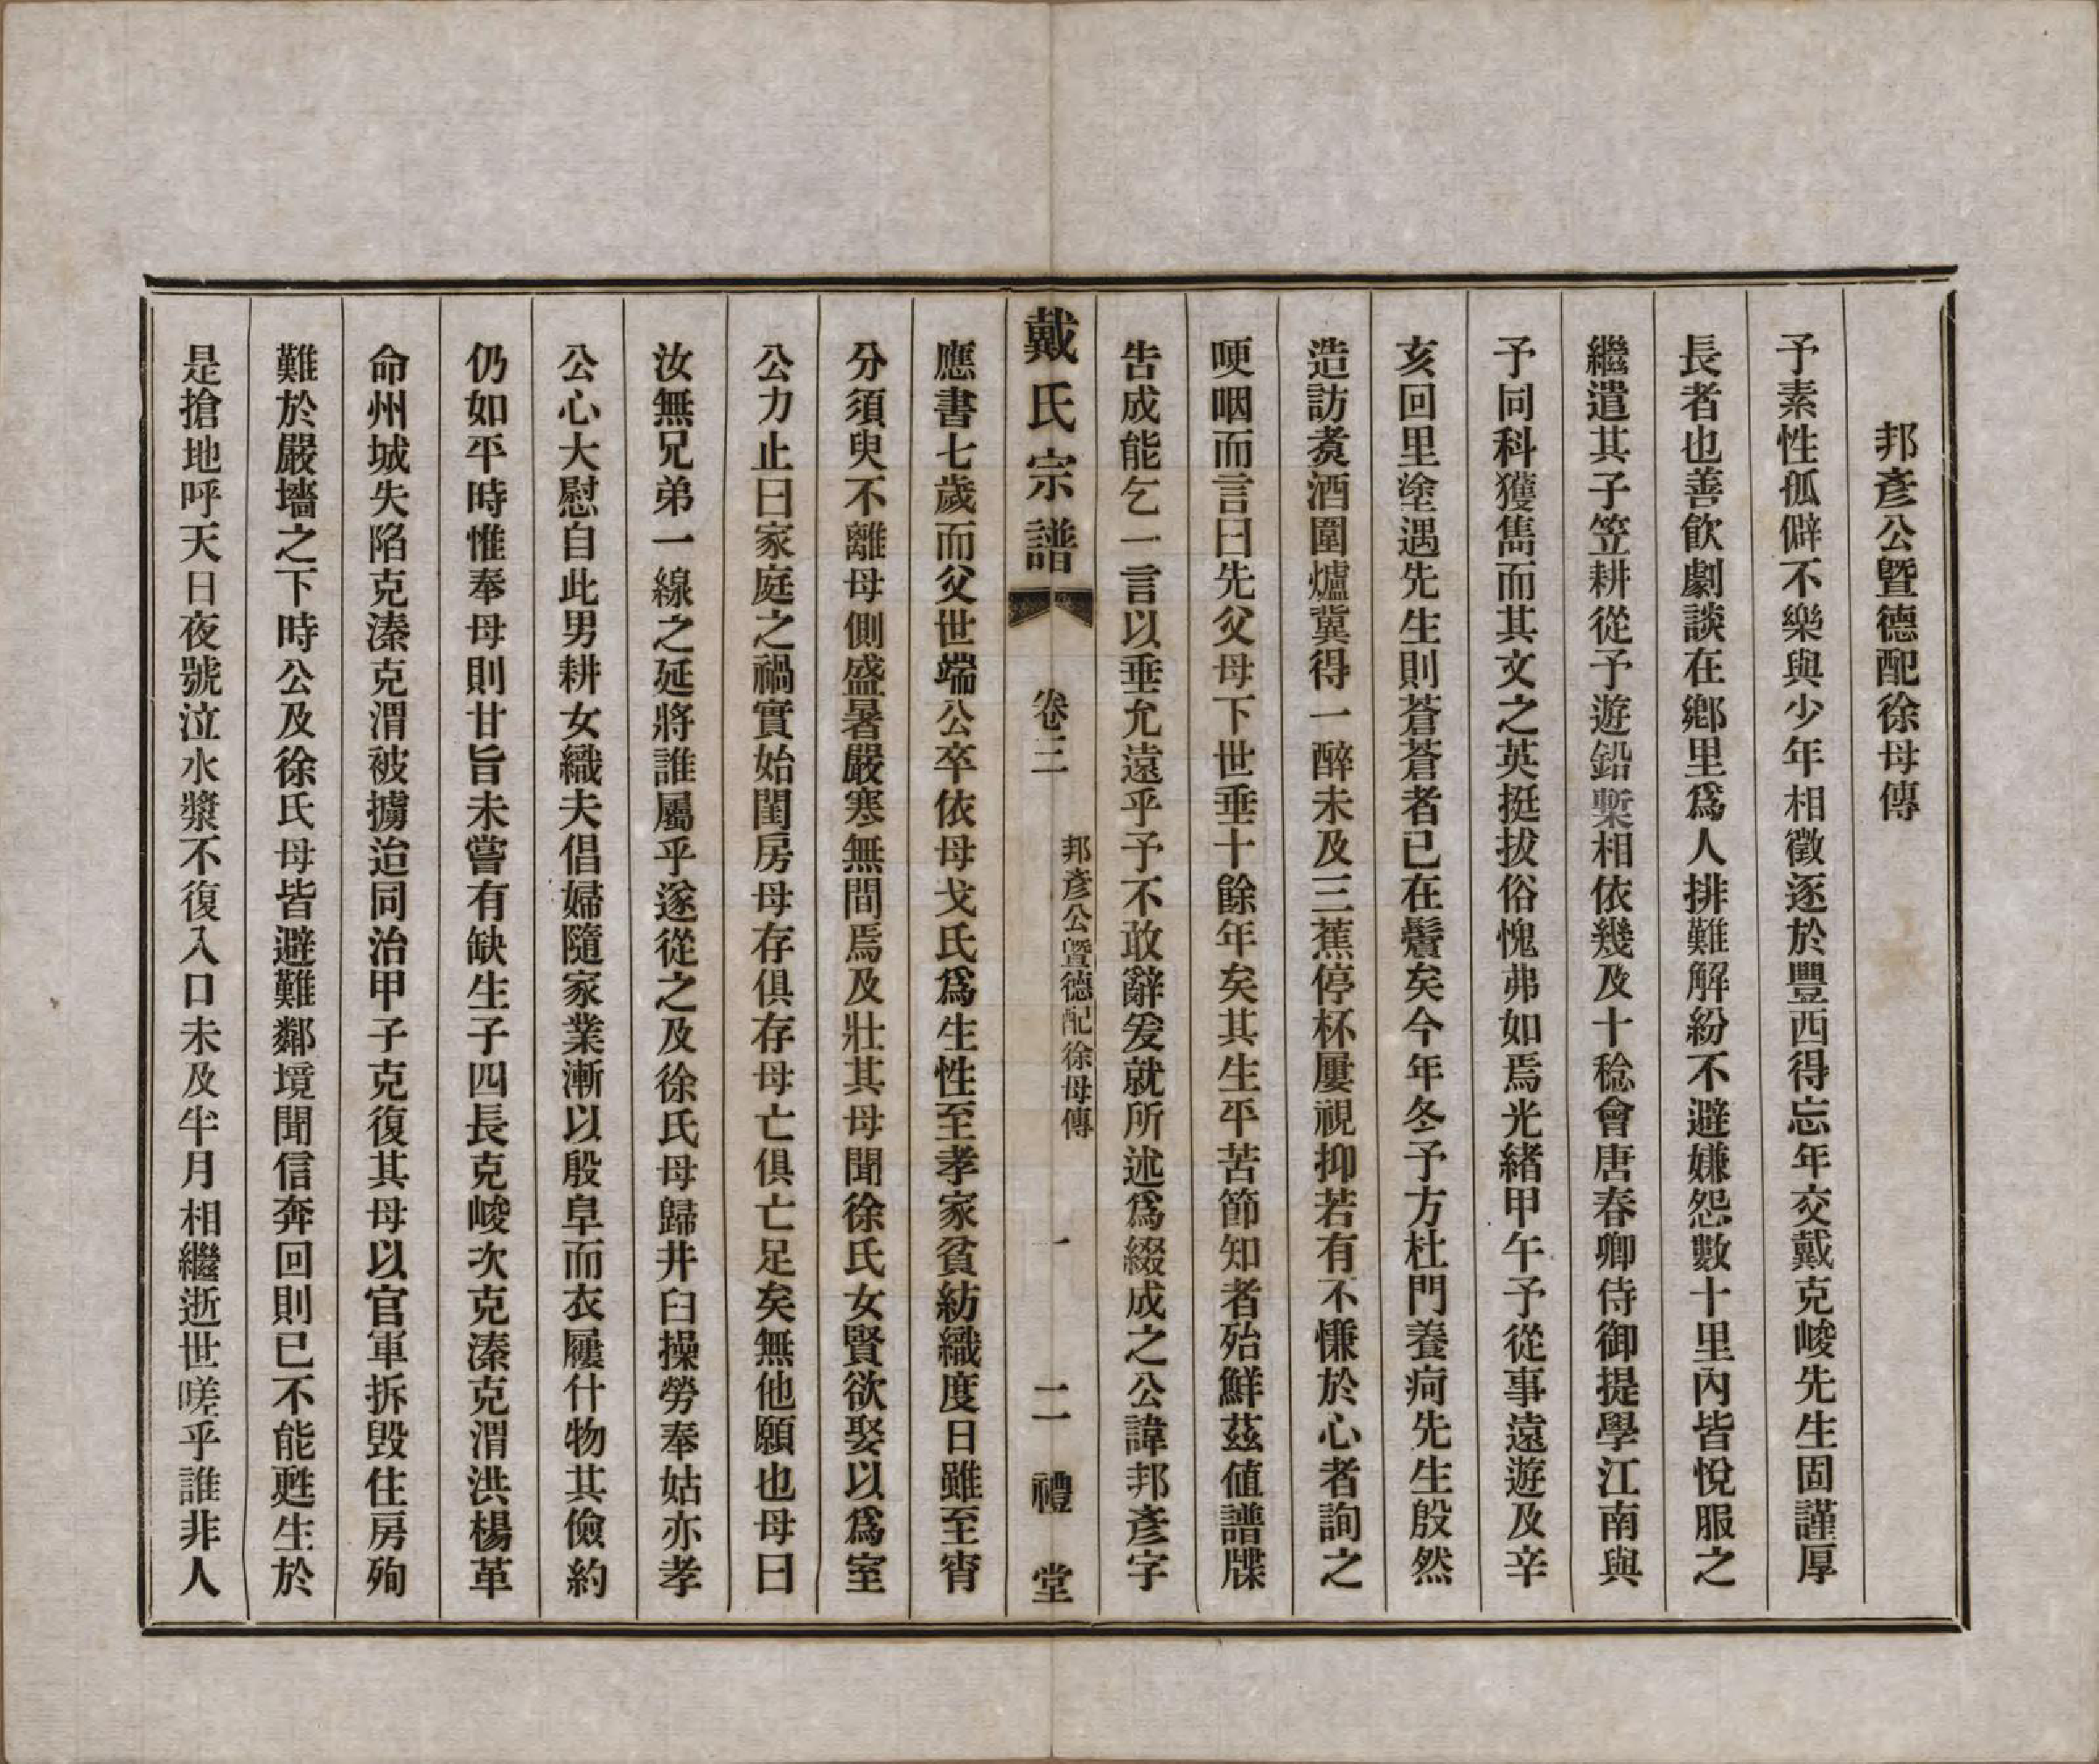 邦彥公暨德配徐母傳
予素性孤僻不樂與少年相徵逐於豐西得忘年交戴克峻先生固謹厚
長者也善飮劇談在鄕里爲人排難解紛不避嫌怨數十里內皆悅服之
繼遣其子笠耕從予遊鉛槧相依幾及十稔會唐春卿侍御提學江南與
予同科獲雋而其文之英挺拔俗愧弗如焉光緖甲午予從事遠遊及辛
亥回里塗遇先生則蒼蒼者已在鬢矣今年冬予方杜門養疴先生殷然
造訪煑酒圍爐冀得一醉未及三蕉停杯屢視抑若有不慊於心者詢之
哽咽而言曰先父母下世垂十餘年矣其生平苦節知者殆鮮茲値譜牒
告成能乞一言以垂允遠乎予不敢辭爰就所述爲綴成之公諱邦彥字
戴氏宗譜 卷三 邦彥公暨德配徐母傳 一 二禮堂
應書七歲而父世端公卒依母戈氏爲生性至孝家貧紡織度日雖至宵
分須臾不離母側盛暑嚴寒無間焉及壯其母聞徐氏女賢欲娶以爲室
公力止曰家庭之禍實始閨房母存俱存母亡俱亡足矣無他願也母曰
汝無兄弟一線之延將誰屬乎遂從之及徐氏母歸井臼操勞奉姑亦孝
公心大慰自此男耕女織夫倡婦隨家業漸以殷阜而衣履什物其儉約
仍如平時惟奉母則甘旨未嘗有缺生子四長克峻次克溱克渭洪楊革
命州城失陷克溱克渭被擄迨同治甲子克復其母以官軍拆毀住房殉
難於嚴墻之下時公及徐氏母皆避難鄰境聞信奔回則已不能甦生於
是搶地呼天日夜號泣水漿不復入口未及半月相繼逝世嗟乎誰非人